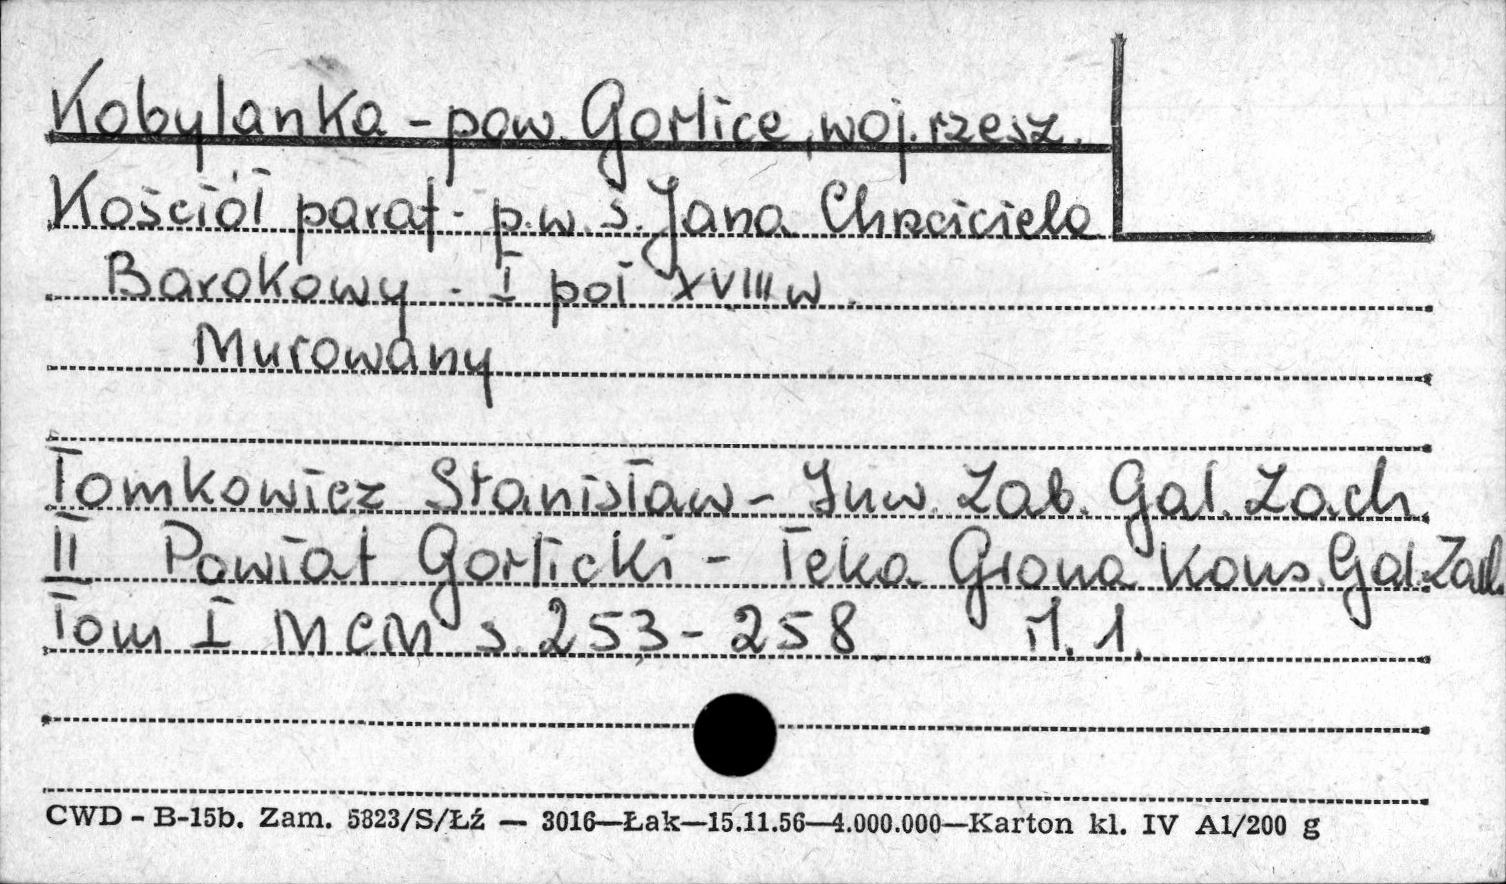 Kobylanka - pow. Gorlice, woj. rzesz.
Kościół paraf. p.w. ś. Jana Chrzciciela
Barokowy - I poł XVIII w.
Murowany
Tomkowicz Stanisław - Inw. Zab. Gal. Zach.
II Powiat Gorlicki - Teka Grona Kons. Gal. Zach.
Tom I MCM s. 253-258 il. 1.
CWD - B-15b. Zam. 5823/S/Łź — 3016—Łak—15.11.56—4.000.000—Karton kl. IV A1/200 g